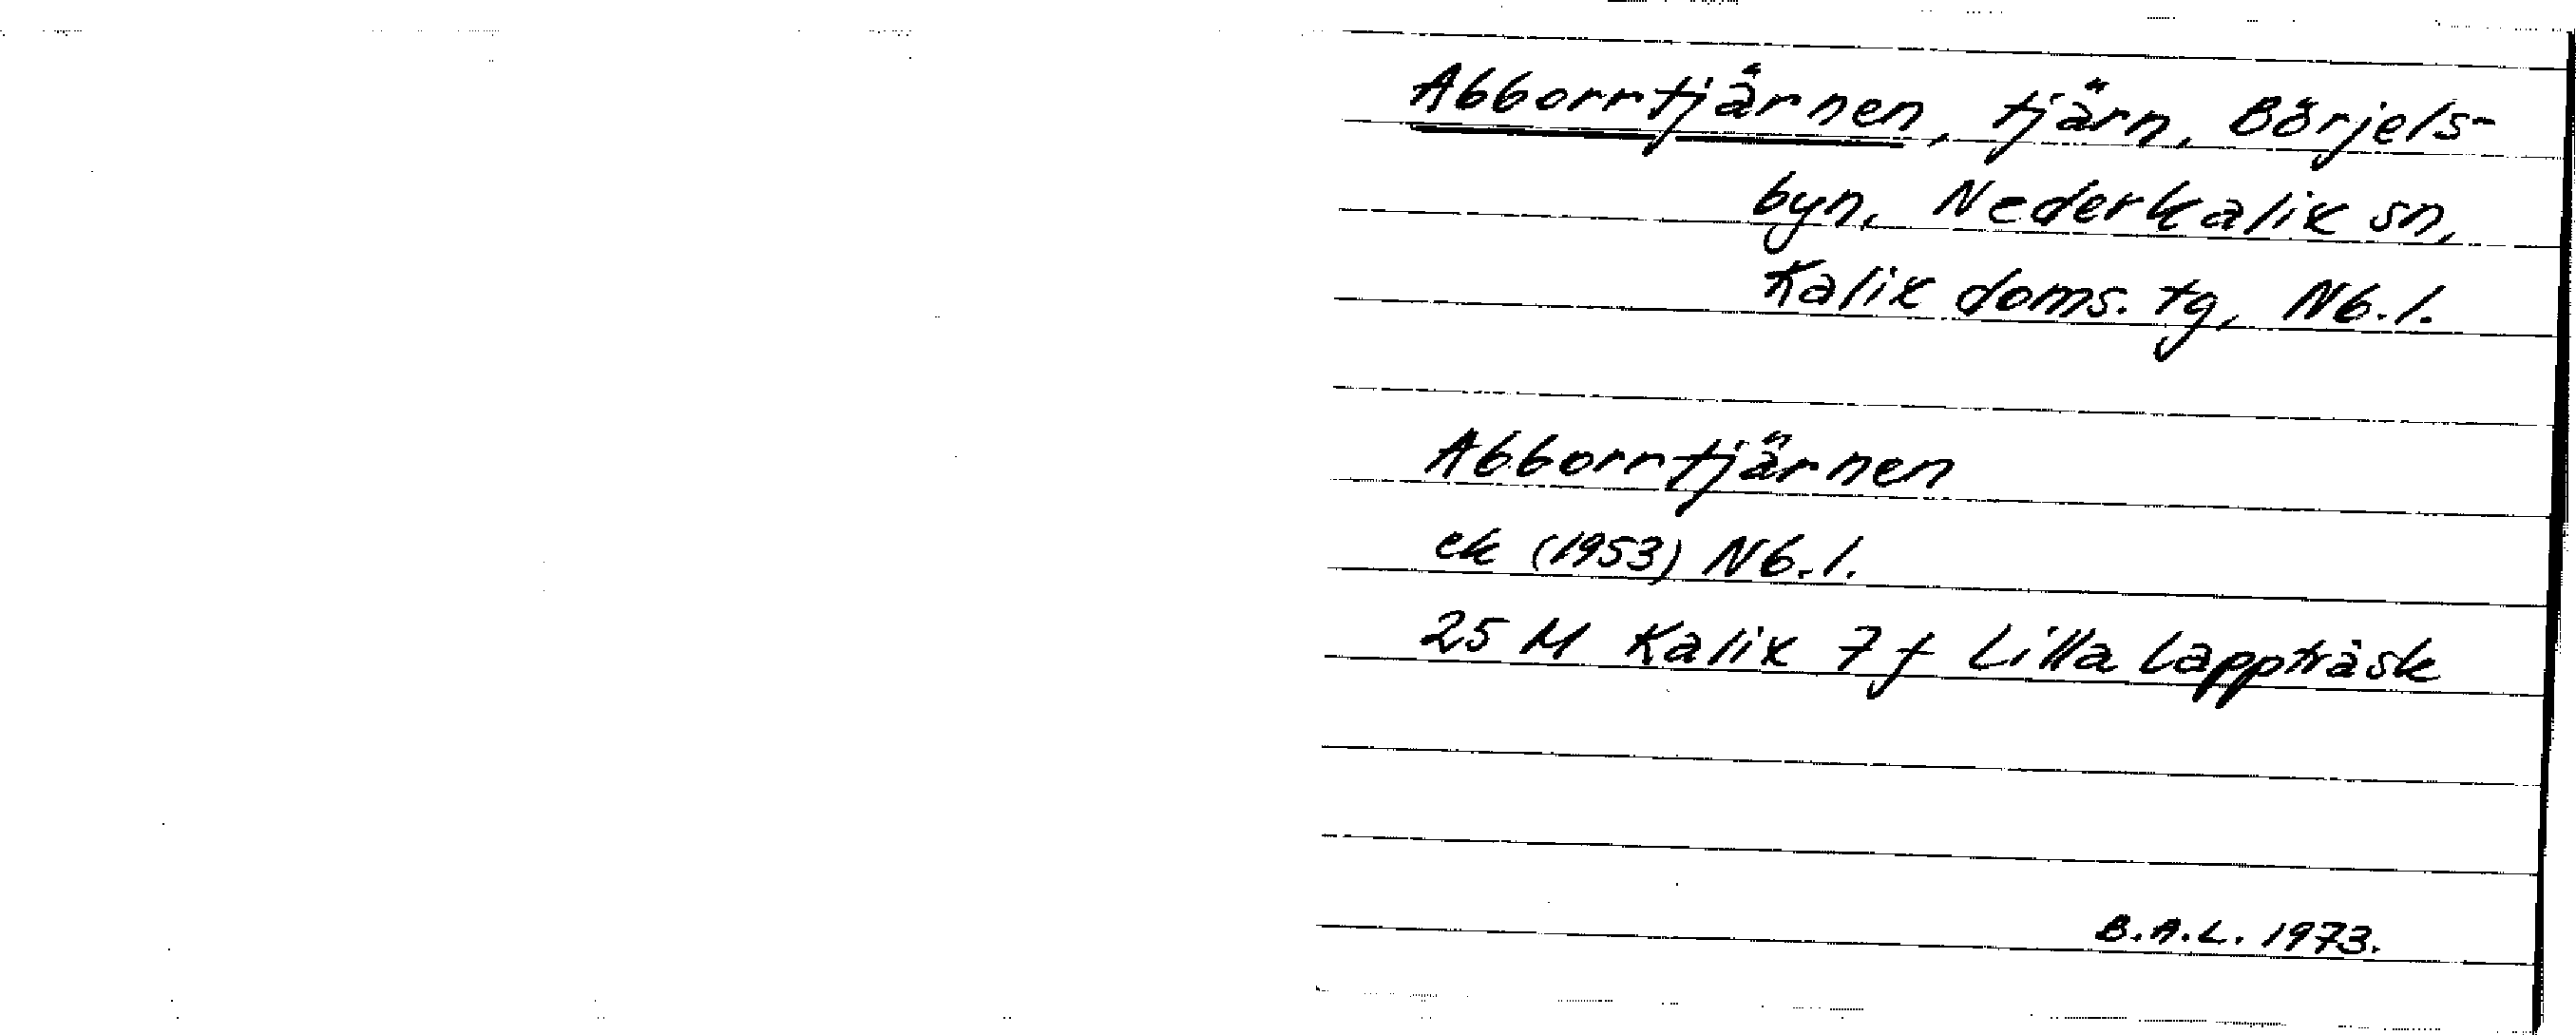 Abborrtjärnen, tjärn, Börjels-
byn, Nederkalix sn,
Kalix doms. tg, Nb.l.
Abborrtjärnen
ek (1953) Nb.l.
25 M Kalix 7 f Lilla Lappträsk
B.A.L. 1973.